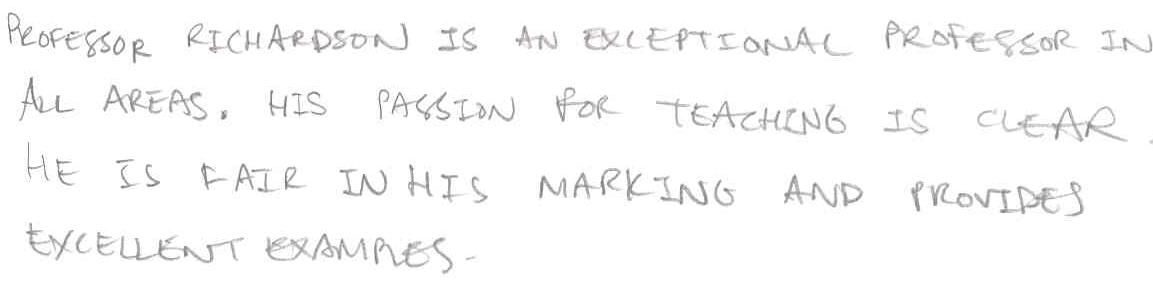 PROFESSOR RICHARDSON IS AN EXCEPTIONAL PROFESSOR IN
ALL AREAS. HIS PASSION FOR TEACHING IS CLEAR.
HE IS FAIR IN HIS MARKING AND PROVIDES
EXCELLENT EXAMPLES.